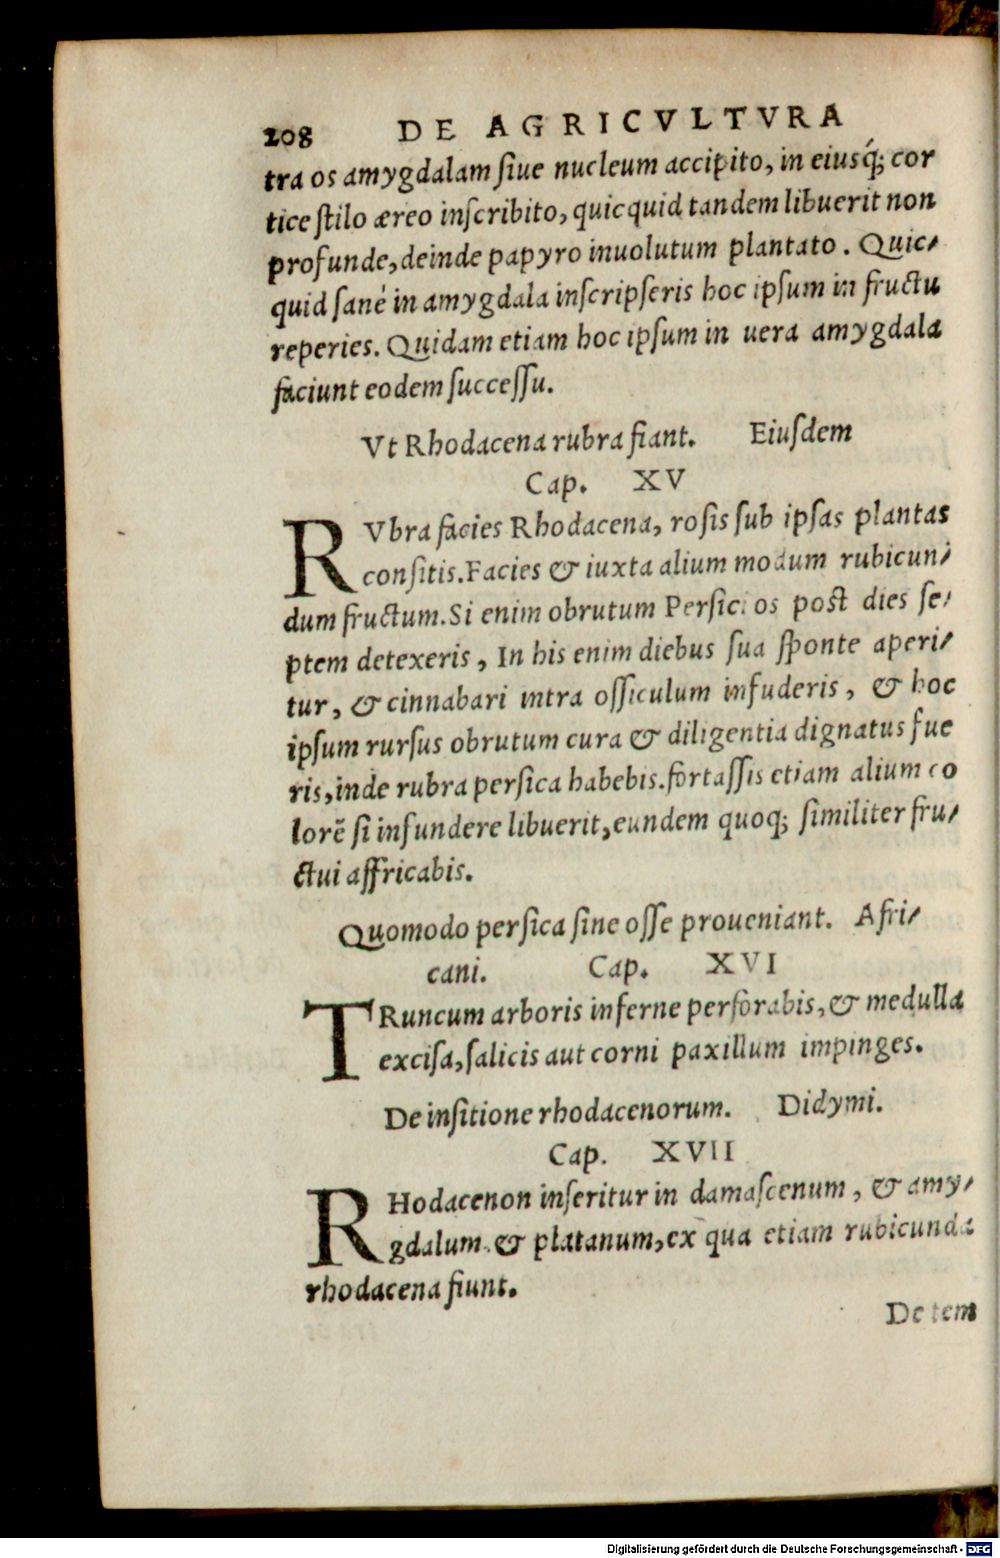 208 DE AGRICVLTVRA
tra os amygdalam ſiue nucleum accipito, in eiusq́; cor
tice ſtilo æreo inſcribito, quicquid tandem libuerit non
profunde, deinde papyro inuolutum plantato. Quic-
quid ſané in amygdala inſcripſeris hoc ipſum in fructu
reperies. Quidam etiam hoc ipſum in uera amygdala
faciunt eodem ſucceſſu.
Vt Rhodacena rubra fiant. Eiuſdem
Cap. XV
RVbra facies Rhodacena, roſis ſub ipſas plantas
conſitis. Facies & iuxta alium modum rubicun-
dum fructum. Si enim obrutum Perſici os poſt dies ſe-
ptem detexeris, In his enim diebus ſua ſponte aperi-
tur, & cinnabari intra oſſiculum infuderis, & hoc
ipſum rurſus obrutum cura & diligentia dignatus fue
ris, inde rubra perſica habebis. fortaſſis etiam alium co
lorē ſi infundere libuerit, eundem quoq; ſimiliter fru-
ctui affricabis.
Quomodo perſica ſine oſſe proueniant. Afri-
cani. Cap. XVI
TRuncum arboris inferne perforabis, & medulla
exciſa, ſalicis aut corni paxillum impinges.
De inſitione rhodacenorum. Didymi.
Cap. XVII
RHodacenon inſeritur in damaſcenum, & amy-
gdalum & platanum, ex qua etiam rubicunda
rhodacena fiunt.
De tem
Digitalisierung gefördert durch die Deutsche Forschungsgemeinschaft - DFG